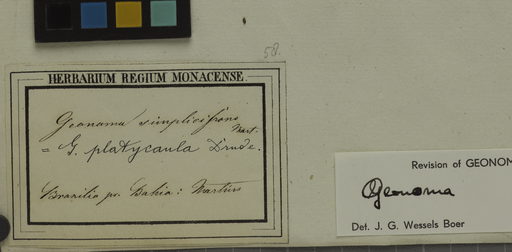 58.
HERBARIUM REGIUM MONACENSE.
Geonoma simplicifrons
Mart.
= G. platycaula Drude.
Brasilia pr. Bahia: Martius
Revision of GEONOM
Geonoma
Det. J. G. Wessels Boer